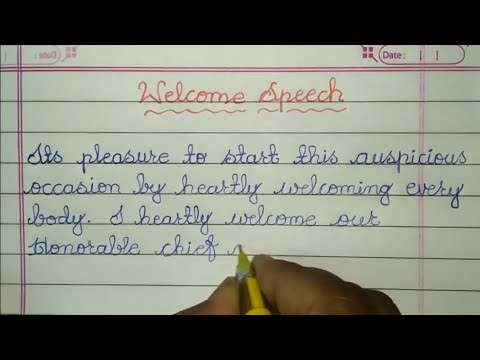 Date :
Welcome Speech
Its pleasure to start this auspicious
occasion by heartly welcoming every
body. I heartly welcome our
Honorable chief